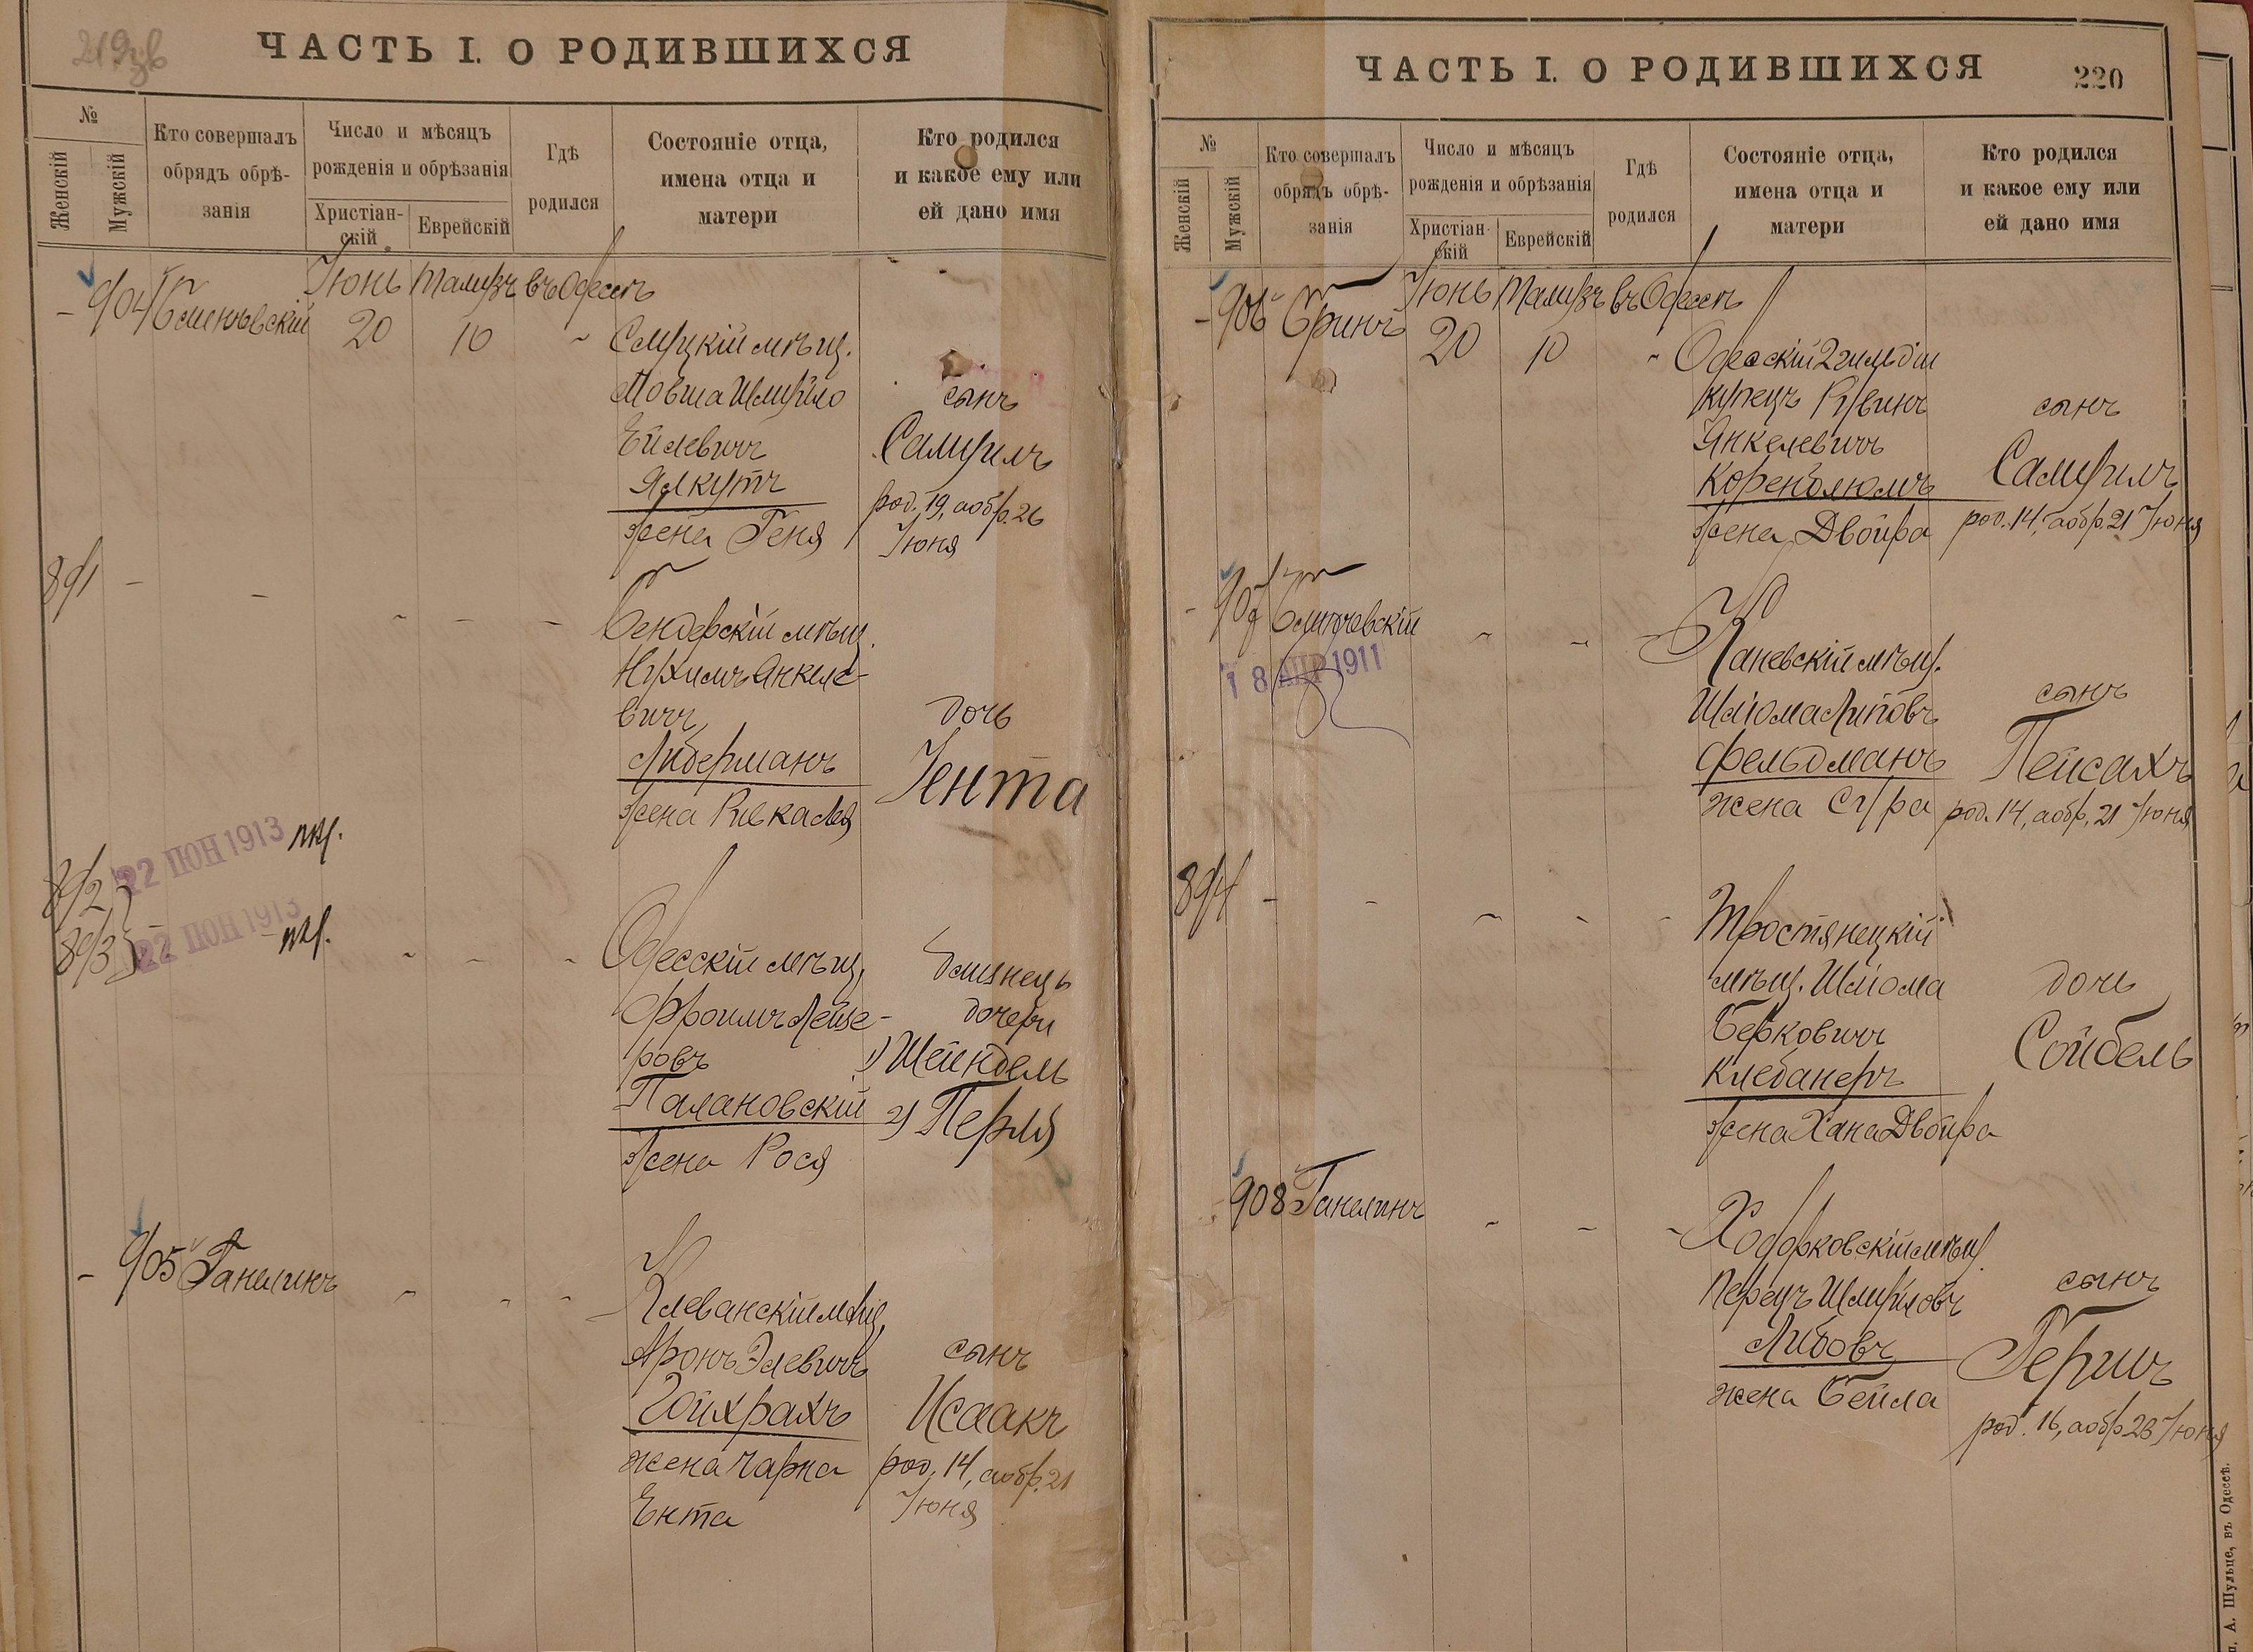 ЧАСТЬ I. О РОДИВШИХСЯ
№
Женскій
Мужскій
Кто совершалъ
обрядъ обрѣ-
занія
Число и мѣсяцъ
рожденія и обрѣзанія
Христіан-
скій
Еврейскій
Гдѣ
родился
Состояніе отца,
имена отца и
матери
Кто родился
и какое ему или
ей дано имя
904
Іюнь Тамузъ въ Одессѣ
20 10
Слуцкій мѣщ.
Мовша Шмуйло
Ейлевичъ
Ялкутъ
жена Геня
сынъ
Самуилъ
род. 19, а обр. 26
Іюня
891
Бендерскій мѣщ.
Нухимъ Анкеле-
вичъ
Либерманъ
жена Ривка Лея
дочь
Іента
22 ІЮН 1913
22 ІЮН 1913
892
893
Одесскій мѣщ.
Фроимъ Лейзе-
ровъ
Палановскій
жена Рося
близнецы
дочери
1) Шейндель
2) Перля
905 Ганелинъ
Клеванскій мѣщ.
Аронъ Элевичъ
Гойхрахъ
жена Чарна
Ента
сынъ
Исаакъ
род. 14, а обр. 21
Іюня
ЧАСТЬ I. О РОДИВШИХСЯ
220
№
Женскій
Мужскій
Кто совершалъ
обрядъ обрѣ-
занія
Число и мѣсяцъ
рожденія и обрѣзанія
Христіан-
скій
Еврейскій
Гдѣ
родился
Состояніе отца,
имена отца и
матери
Кто родился
и какое ему или
ей дано имя
906
Іюнь Тамузъ въ Одессѣ
20 10
Одесскій 2 гильдіи
купецъ Рувинъ
Янкелевичъ
Коренблюмъ
жена Двойра
сынъ
Самуилъ
род. 14, а обр. 21 Іюня
907
18 АПР 1911
Каневскій мѣщ.
Шлюма Липовъ
Фельдманъ
жена Сура
сынъ
Пейсахъ
род. 14, а обр. 21 Іюня
894
Тростянецкій
мѣщ. Шлюма
Берковичъ
Клебанеръ
жена Хана Двойра
дочь
Сойбель
908 Ганелинъ
Ходорковскій мѣщ.
Перецъ Шмуйловъ
Либовъ
жена Бейла
сынъ
Гершъ
род. 16, а обр. 23 Іюня
А. Шульце, въ Одессѣ.